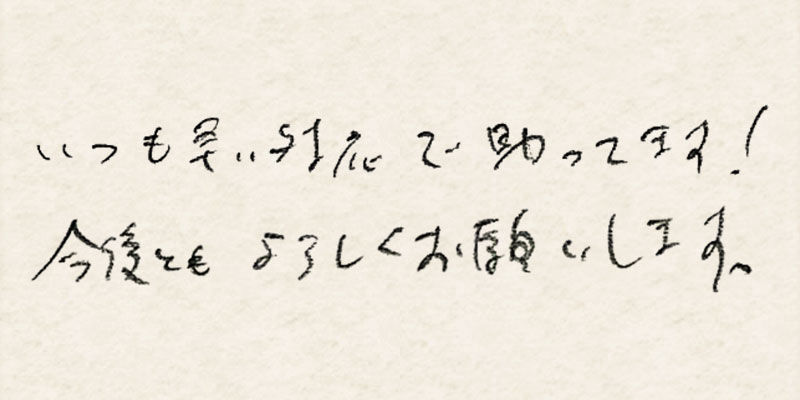 いつも早い対応で助ってます!
今後ともよろしくお願いします。